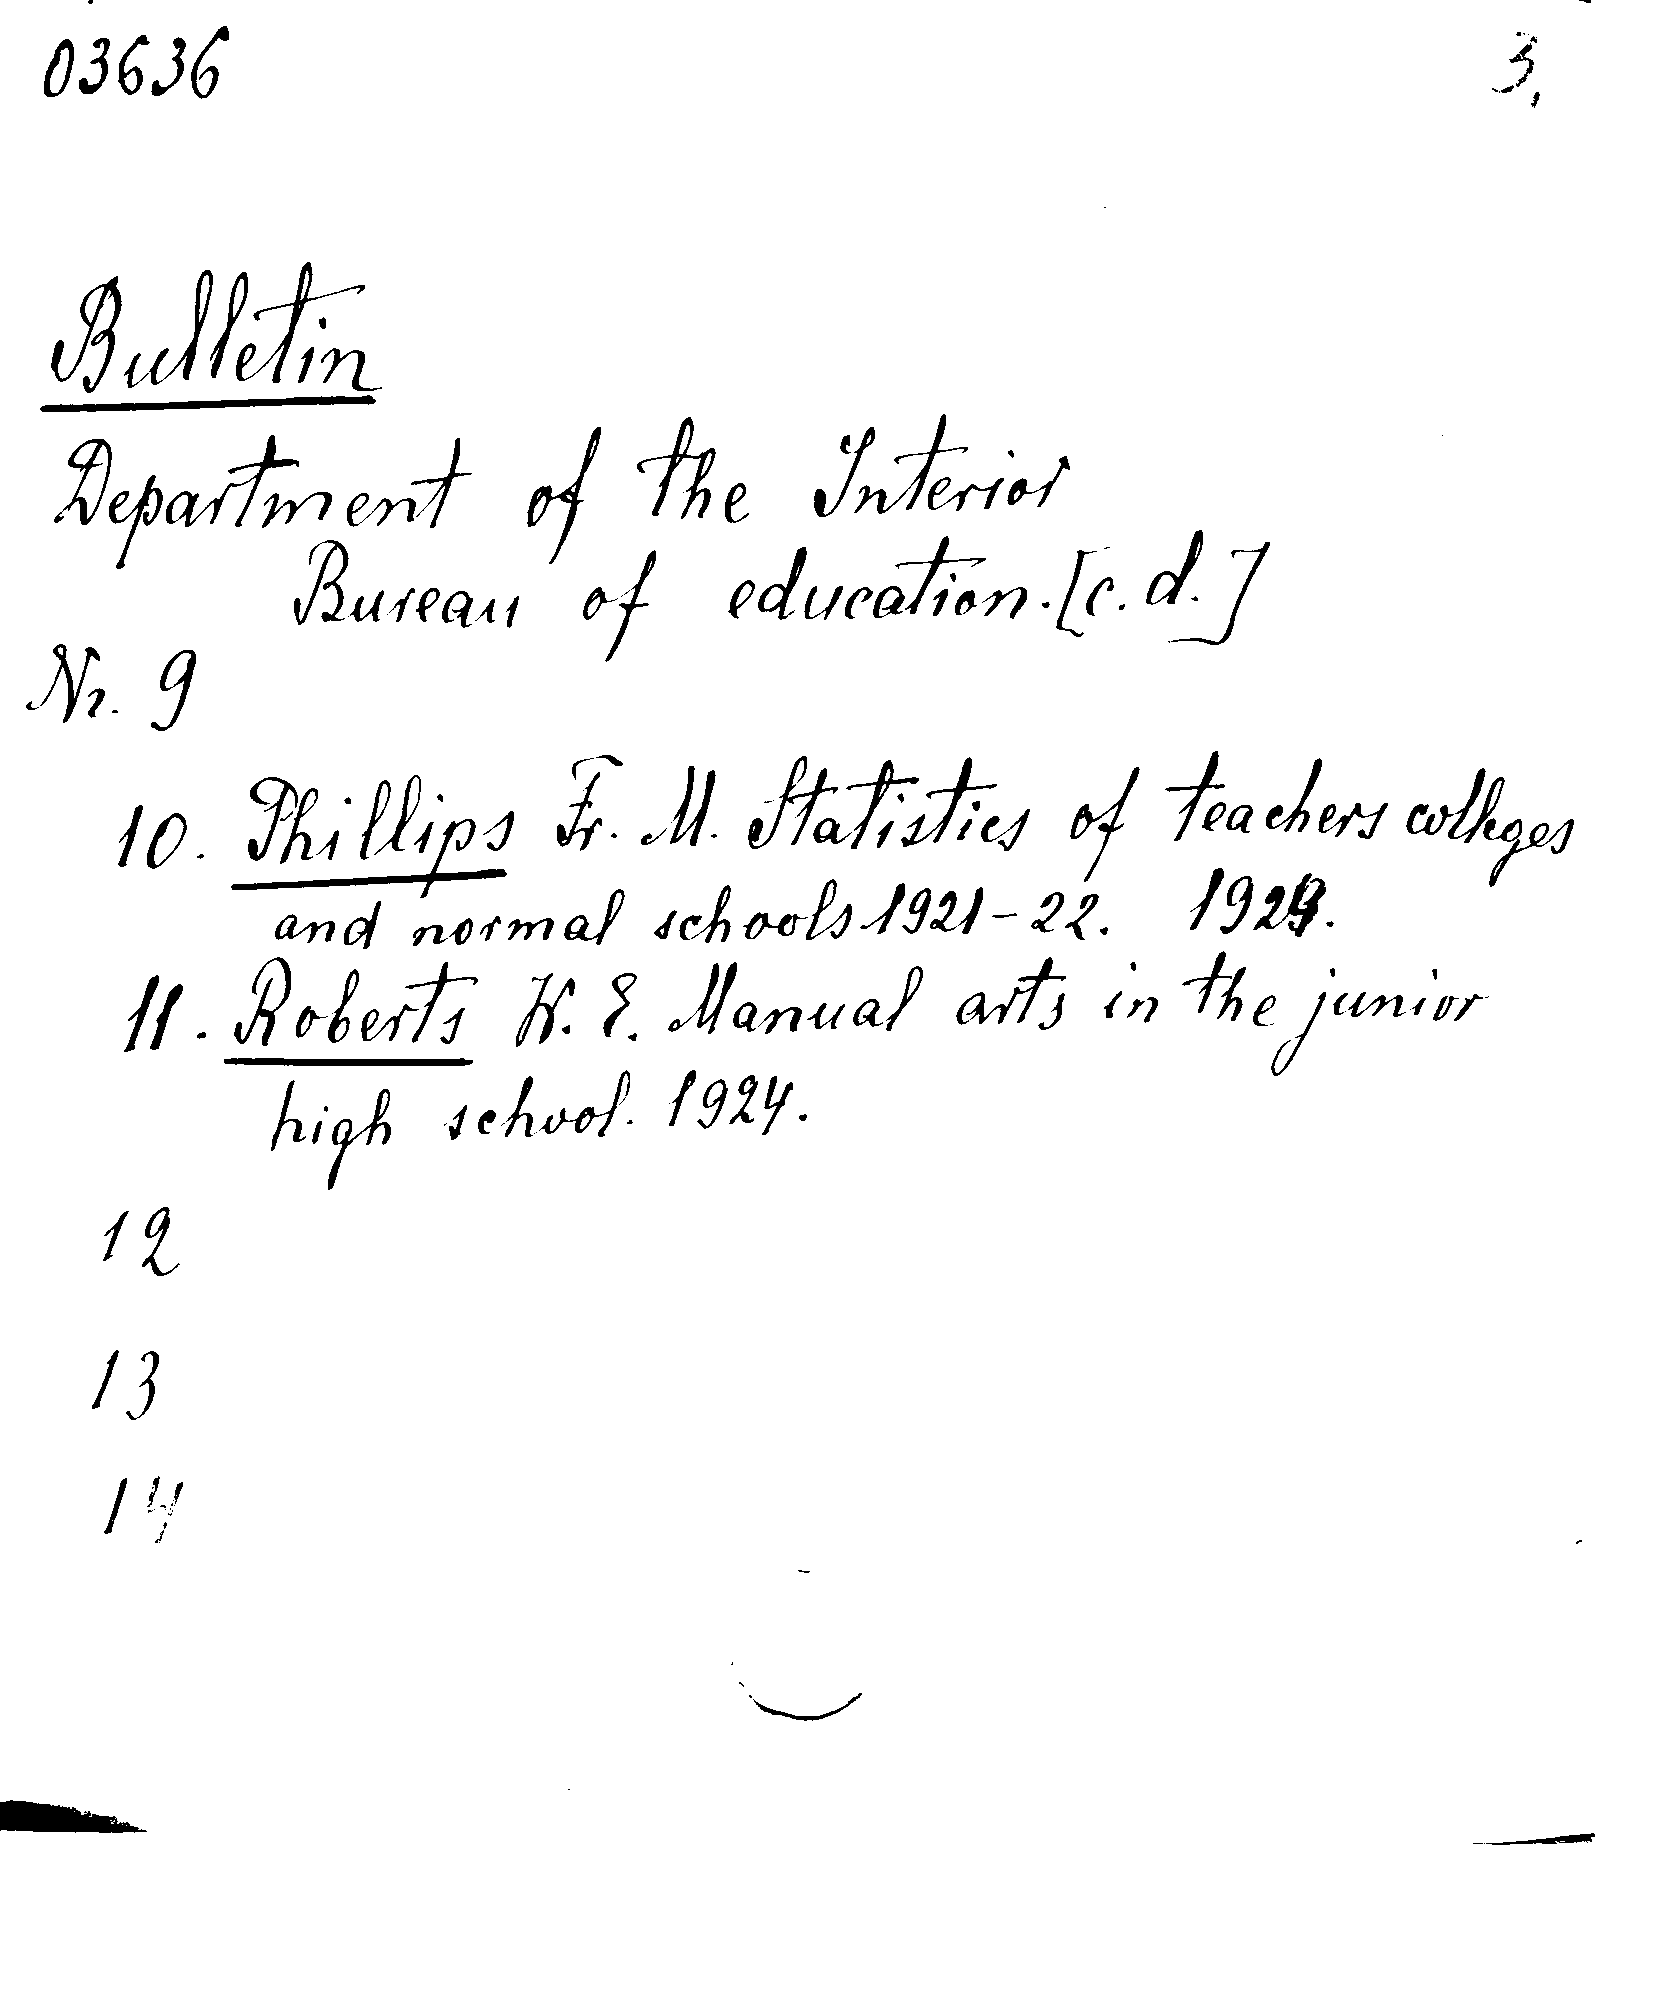 03636
3.
Bulletin
Department of the Interior
Bureau of education. [c.d.]
Nr. 9
10. Phillips Fr. M. Statistics of teachers colleges
and normal schools 1921-22. 1924.
11. Roberts W. E. Manual arts in the junior
high school. 1924.
12
13
14